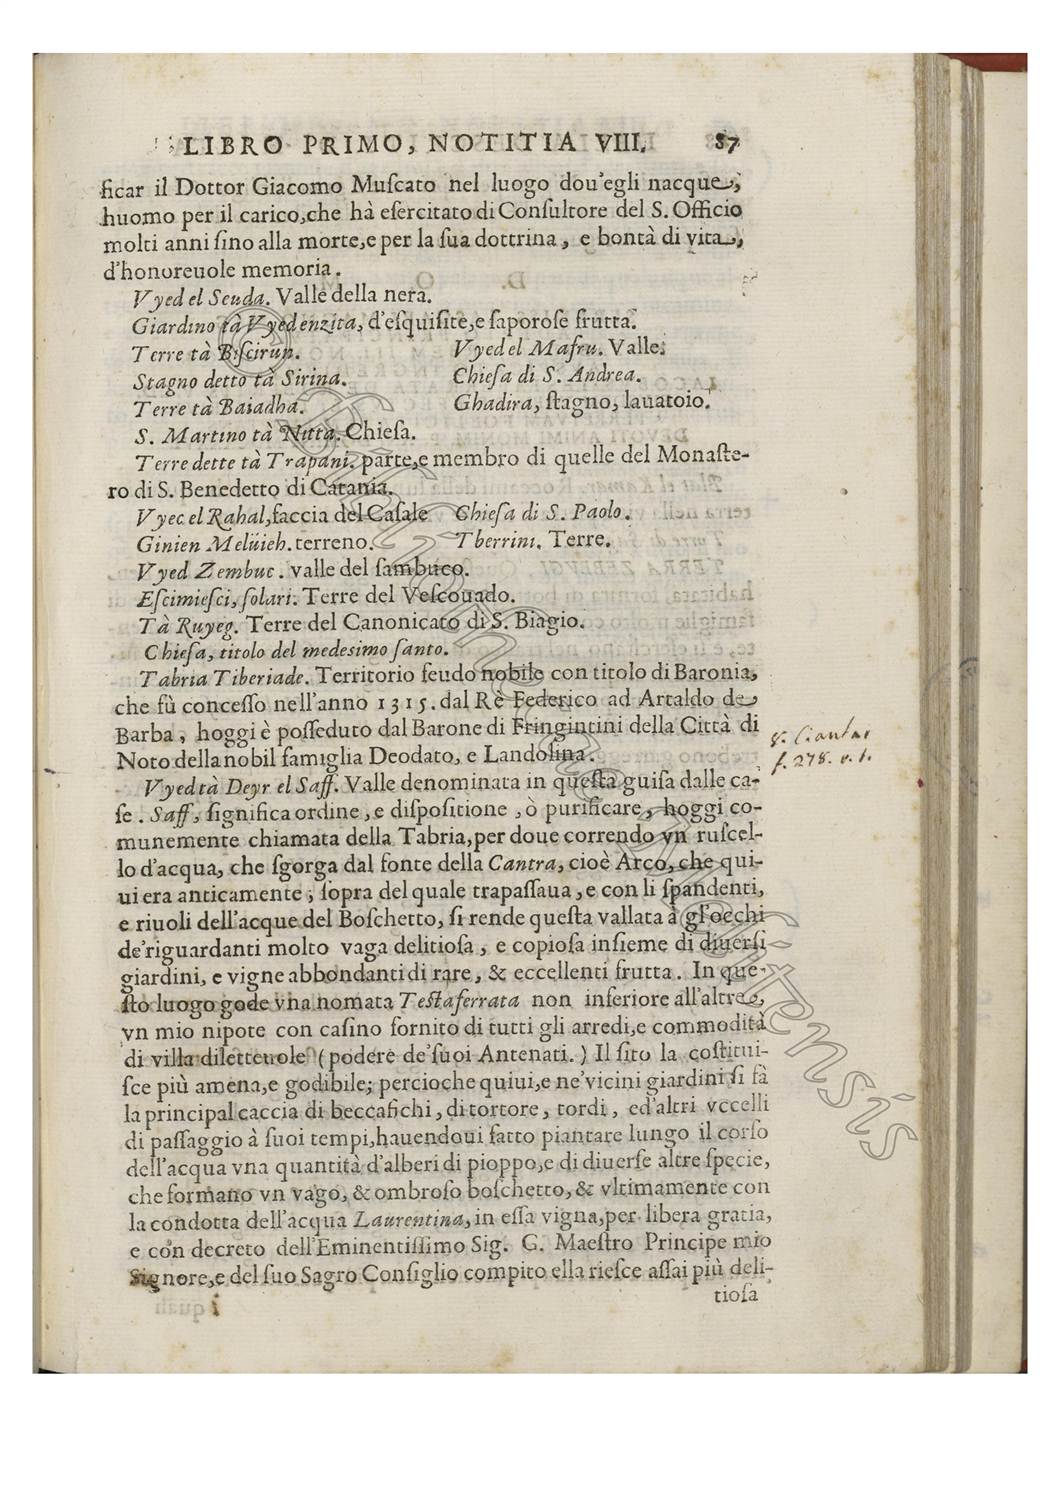 LIBRO PRIMO, NOTITIA VIII. 87
ficar il Dottor Giacomo Muſcato nel luogo dou'egli nacque,
huomo per il carico, che hà eſercitato di Conſultore del S. Officio
molti anni ſino alla morte, e per la ſua dottrina, e bontà di vita,
d'honoreuole memoria.
Vyed el Seuda. Valle della nera.
Giardino tà Vyed enzita, d'eſquiſite, e ſaporoſe frutta.
Terre tà Biſcirun. Vyed el Mafru. Valle.
Stagno detto tà Sirina. Chieſa di S. Andrea.
Terre tà Baiadha. Ghadira, ſtagno, lauatoio.
S. Martino tà Nitta. Chieſa.
Terre dette tà Trapani. parte, e membro di quelle del Monaſte-
ro di S. Benedetto di Catania.
Vyec el Rahal, faccia del Caſale Chieſa di S. Paolo.
Ginien Melüieh. terreno. Tberrini. Terre.
Vyed Zembuc. valle del ſambuco.
Eſcimieſci, ſolari. Terre del Veſcouado.
Tà Ruyeg. Terre del Canonicato di S. Biagio.
Chieſa, titolo del medesimo ſanto.
Tabria Tiberiade. Territorio feudo nobile con titolo di Baronia,
che fù conceſſo nell'anno 1315. dal Rè Federico ad Artaldo de
Barba, hoggi è poſſeduto dal Barone di Fringintini della Città di
Noto della nobil famiglia Deodato, e Landolina.
v. Ciantar
f. 278. v. 1.
Vyed tà Deyr el Saff. Valle denominata in queſta guiſa dalle ca-
ſe. Saff, ſignifica ordine, e diſpoſitione, ò purificare, hoggi co-
munemente chiamata della Tabria, per doue correndo vn ruſcel-
lo d'acqua, che ſgorga dal fonte della Cantra, cioè Arco, che qui-
ui era anticamente, ſopra del quale trapaſſaua, e con li ſpandenti,
e riuoli dell'acque del Boſchetto, ſi rende queſta vallata à gl'occhi
de'riguardanti molto vaga delitioſa, e copioſa inſieme di diuerſi
giardini, e vigne abbondanti di rare, & eccellenti frutta. In que-
ſto luogo gode vna nomata Teſtaferrata non inferiore all'altre,
vn mio nipote con caſino fornito di tutti gli arredi, e commodità
di villa diletteuole (podere de'ſuoi Antenati.) Il ſito la coſtitui-
ſce più amena, e godibile; percioche quiui, e ne'vicini giardini ſi fà
la principal caccia di beccafichi, di tortore, tordi, ed'altri vccelli
di paſſaggio à ſuoi tempi, hauendoui fatto piantare lungo il corſo
dell'acqua vna quantità d'alberi di pioppo, e di diuerſe altre ſpecie,
che formano vn vago, & ombroſo boſchetto, & vltimamente con
la condotta dell'acqua Laurentina, in eſſa vigna, per libera gratia,
e con decreto dell'Eminentiſſimo Sig. G. Maeſtro Principe mio
Signore, e del ſuo Sagro Conſiglio compito ella rieſce aſſai più deli-
tioſa